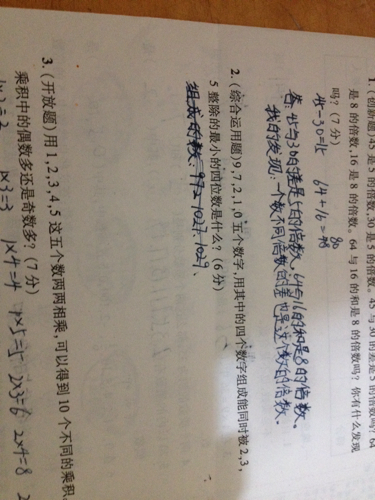 1. (创新题) 45 是 5 的倍数,30 是 5 的倍数。45 与 30 的差是 5 的倍数吗? 64
是 8 的倍数,16 是 8 的倍数。64 与 16 的和是 8 的倍数吗? 你有什么发现
吗? (7 分)
45-30=15 64+16=80
答:45与30的差是5的倍数,64与16的和是8的倍数。
我的发现:一个数不同倍数的差也是这个数的倍数。
2. (综合运用题) 9,7,2,1,0 五个数字,用其中的四个数字组成能同时被 2,3,
5 整除的最小的四位数是什么? (6 分)
组成的数 972 1027 1029、
3. (开放题) 用 1,2,3,4,5 这五个数两两相乘,可以得到 10 个不同的乘积。
乘积中的偶数多还是奇数多? (7 分)
1×2=2 1×3=3 1×4=4 1×5=5 2×3=6 2×4=8